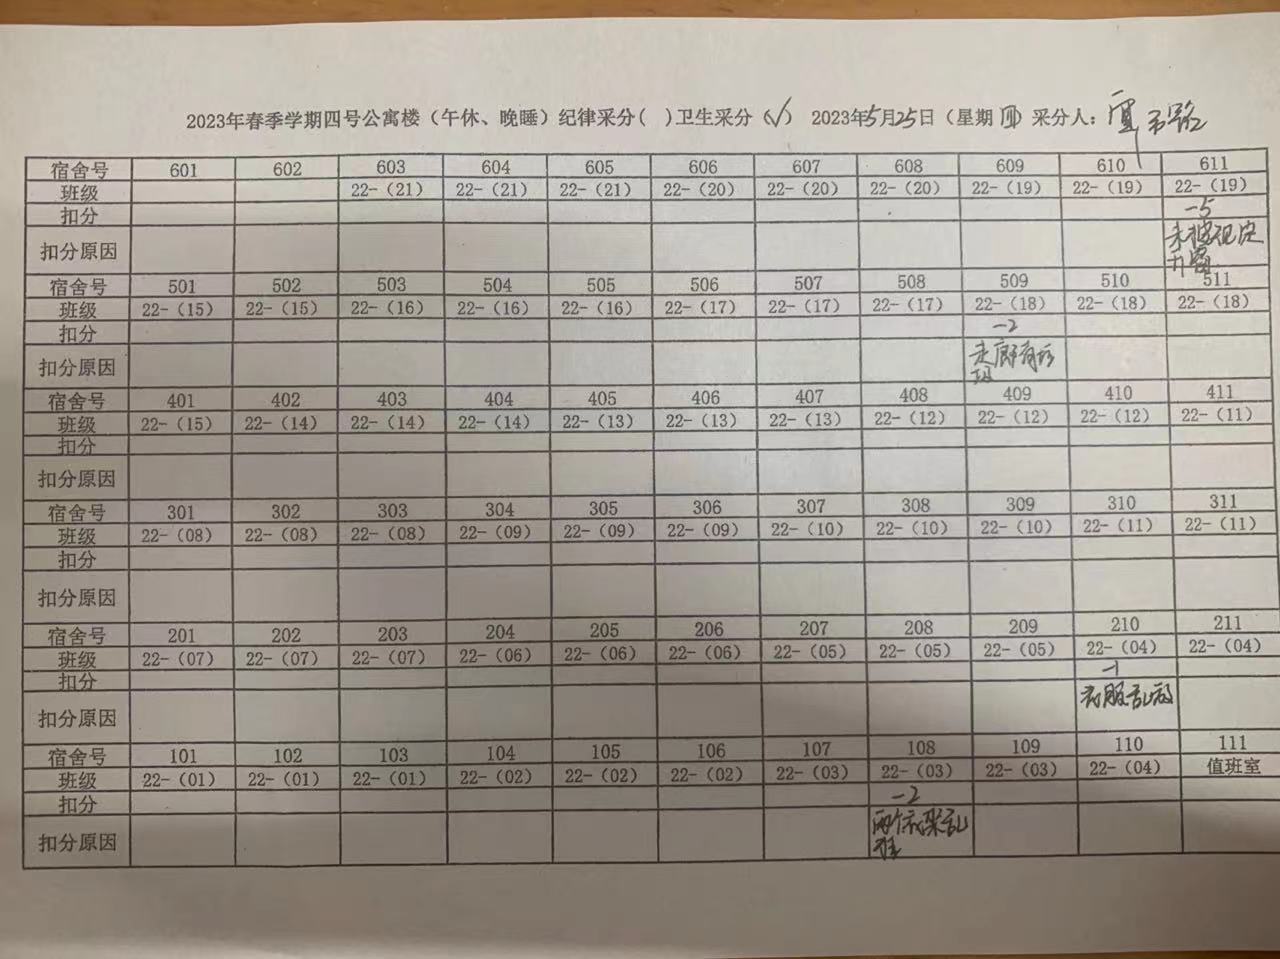 2023年春季学期四号公寓楼（午休、晚睡）纪律采分( )卫生采分（√） 2023年5月25日（星期四 采分人：
宿舍号 601 602 603 604 605 606 607 608 609 610 611
班级 22-（21） 22-（21） 22-（21） 22-（20） 22-（20） 22-（20） 22-（19） 22-（19） 22-（19）
扣分 -5
扣分原因 未按规定
开窗
宿舍号 501 502 503 504 505 506 507 508 509 510 511
班级 22-（15） 22-（15） 22-（16） 22-（16） 22-（16） 22-（17） 22-（17） 22-（17） 22-（18） 22-（18） 22-（18）
扣分 -2
扣分原因 走廊有垃
圾
宿舍号 401 402 403 404 405 406 407 408 409 410 411
班级 22-（15） 22-（14） 22-（14） 22-（14） 22-（13） 22-（13） 22-（13） 22-（12） 22-（12） 22-（12） 22-（11）
扣分
扣分原因
宿舍号 301 302 303 304 305 306 307 308 309 310 311
班级 22-（08） 22-（08） 22-（08） 22-（09） 22-（09） 22-（09） 22-（10） 22-（10） 22-（10） 22-（11） 22-（11）
扣分
扣分原因
宿舍号 201 202 203 204 205 206 207 208 209 210 211
班级 22-（07） 22-（07） 22-（07） 22-（06） 22-（06） 22-（06） 22-（05） 22-（05） 22-（05） 22-（04） 22-（04）
扣分 -1
扣分原因 衣服乱放
宿舍号 101 102 103 104 105 106 107 108 109 110 111
班级 22-（01） 22-（01） 22-（01） 22-（02） 22-（02） 22-（02） 22-（03） 22-（03） 22-（03） 22-（04） 值班室
扣分 -2
扣分原因 两个衣架乱
挂